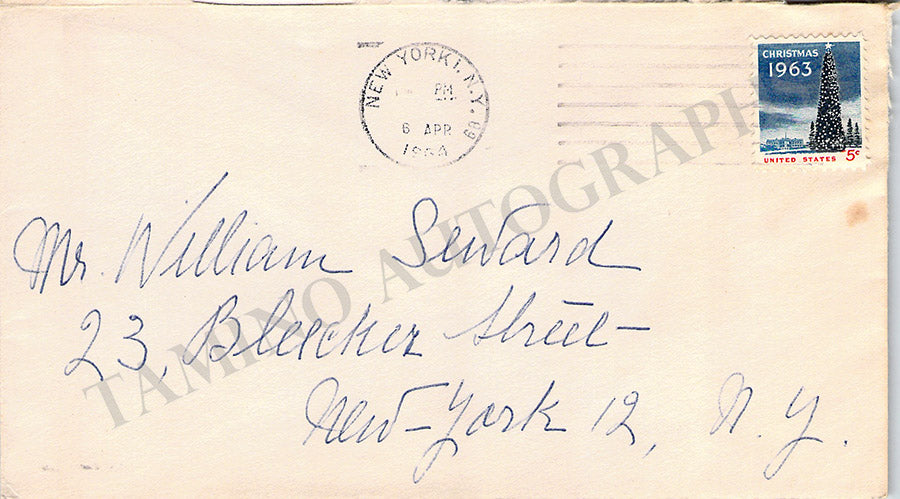 NEW YORK 1, N.Y.
PM
6 APR
1964
CHRISTMAS
1963
UNITED STATES 5c
Mr. William Seward
23, Bleecker Street-
New-York 12, N. Y.
TAMINO AUTOGRAPHS